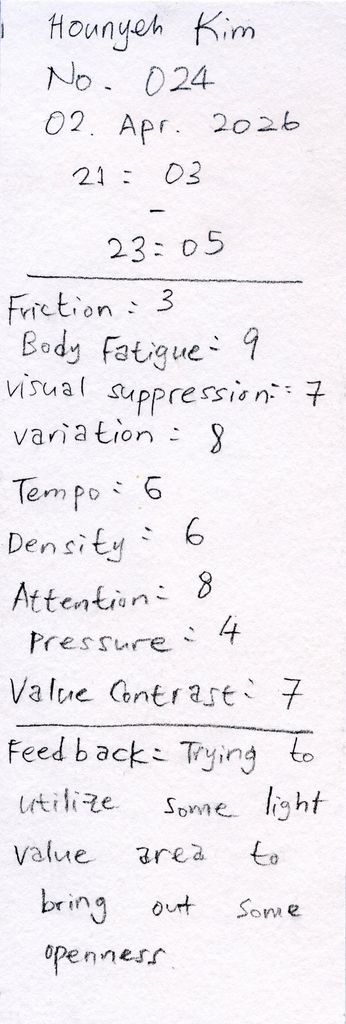 Hounyeh Kim
No. 024
02. Apr. 2026
21 : 03
-
23 : 05
Friction : 3
Body Fatigue : 9
visual suppression : 7
variation : 8
Tempo : 6
Density : 6
Attention : 8
Pressure : 4
Value Contrast : 7
Feedback : Trying to
utilize some light
value area to
bring out some
openness